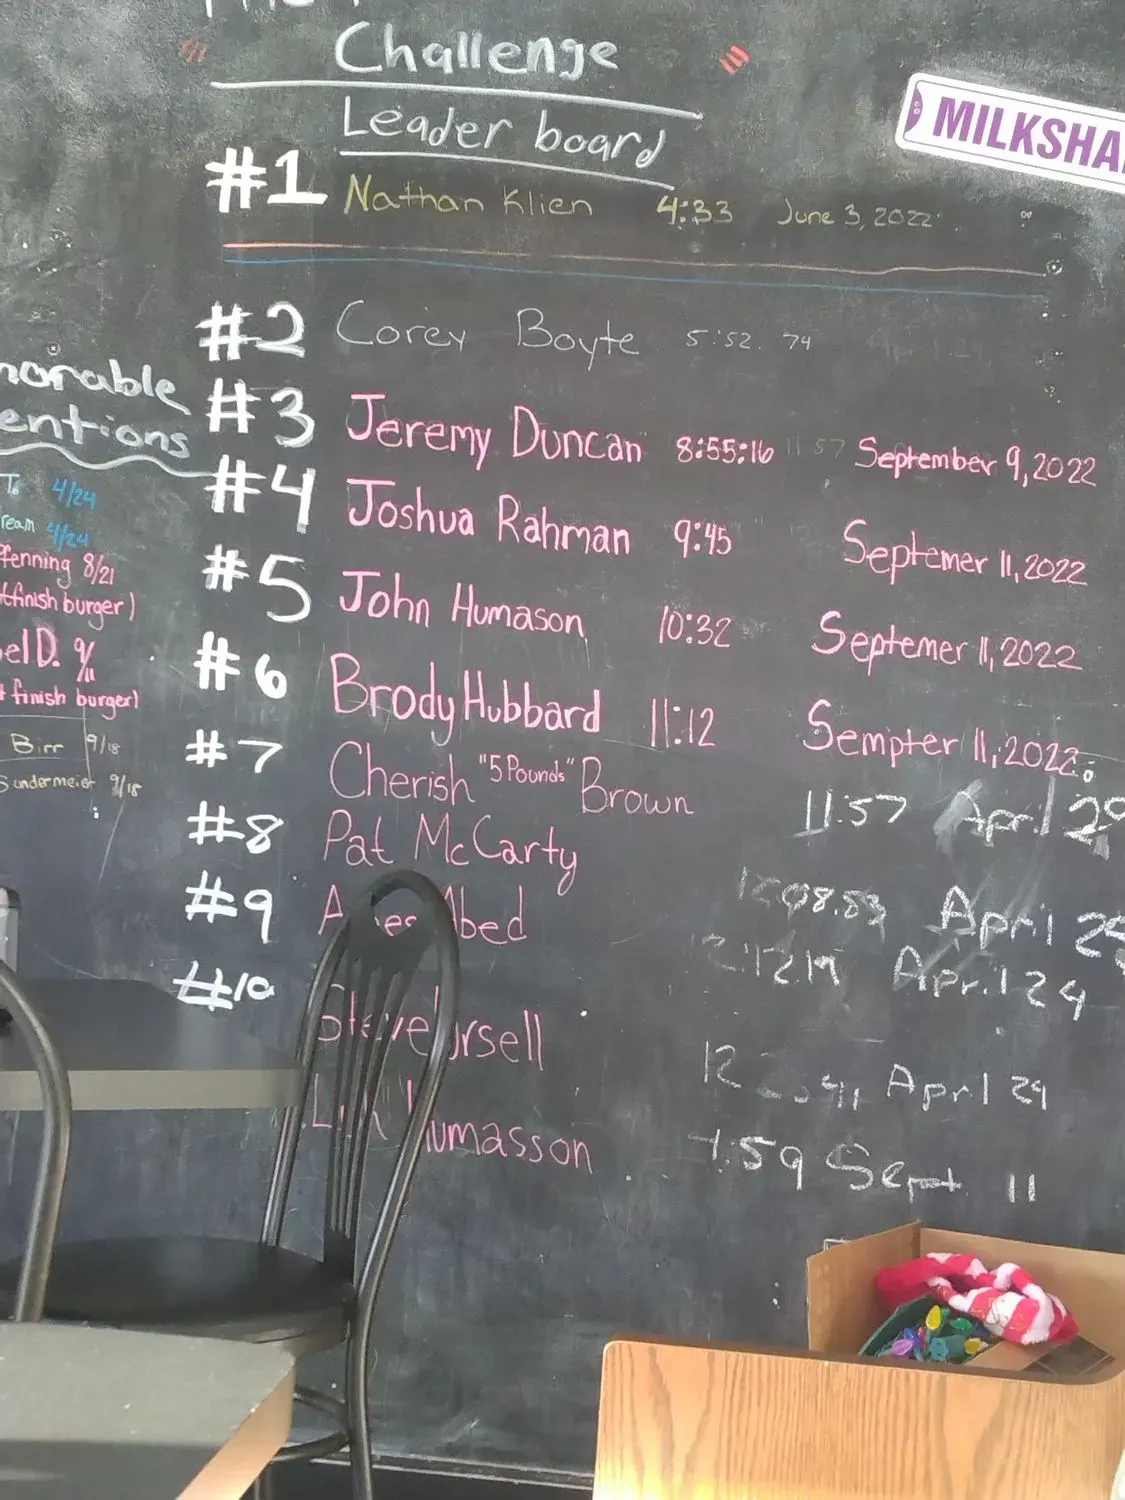 Challenge
Leader board
MILKSHA
#1 Nathan Klien 4:33 June 3, 2022
#2 Corey Boyte 5:52.74
#3 Jeremy Duncan 8:55:16 11:57 September 9, 2022
#4 Joshua Rahman 9:45 Septemer 11, 2022
#5 John Humason 10:32 Septemer 11, 2022
#6 Brody Hubbard 11:12 Sempter 11, 2022
#7 Cherish "5 Pounds" Brown 11:57 April 29
#8 Pat McCarty April
#9 Abed April 24
#10
Steve April 29
umasson Sept 11
norable
entions
To 4/24
ream 4/24
fenning 8/21
tfinish burger)
el D. 9/11
t finish burger)
Birr 9/18
Sundermeier 9/18